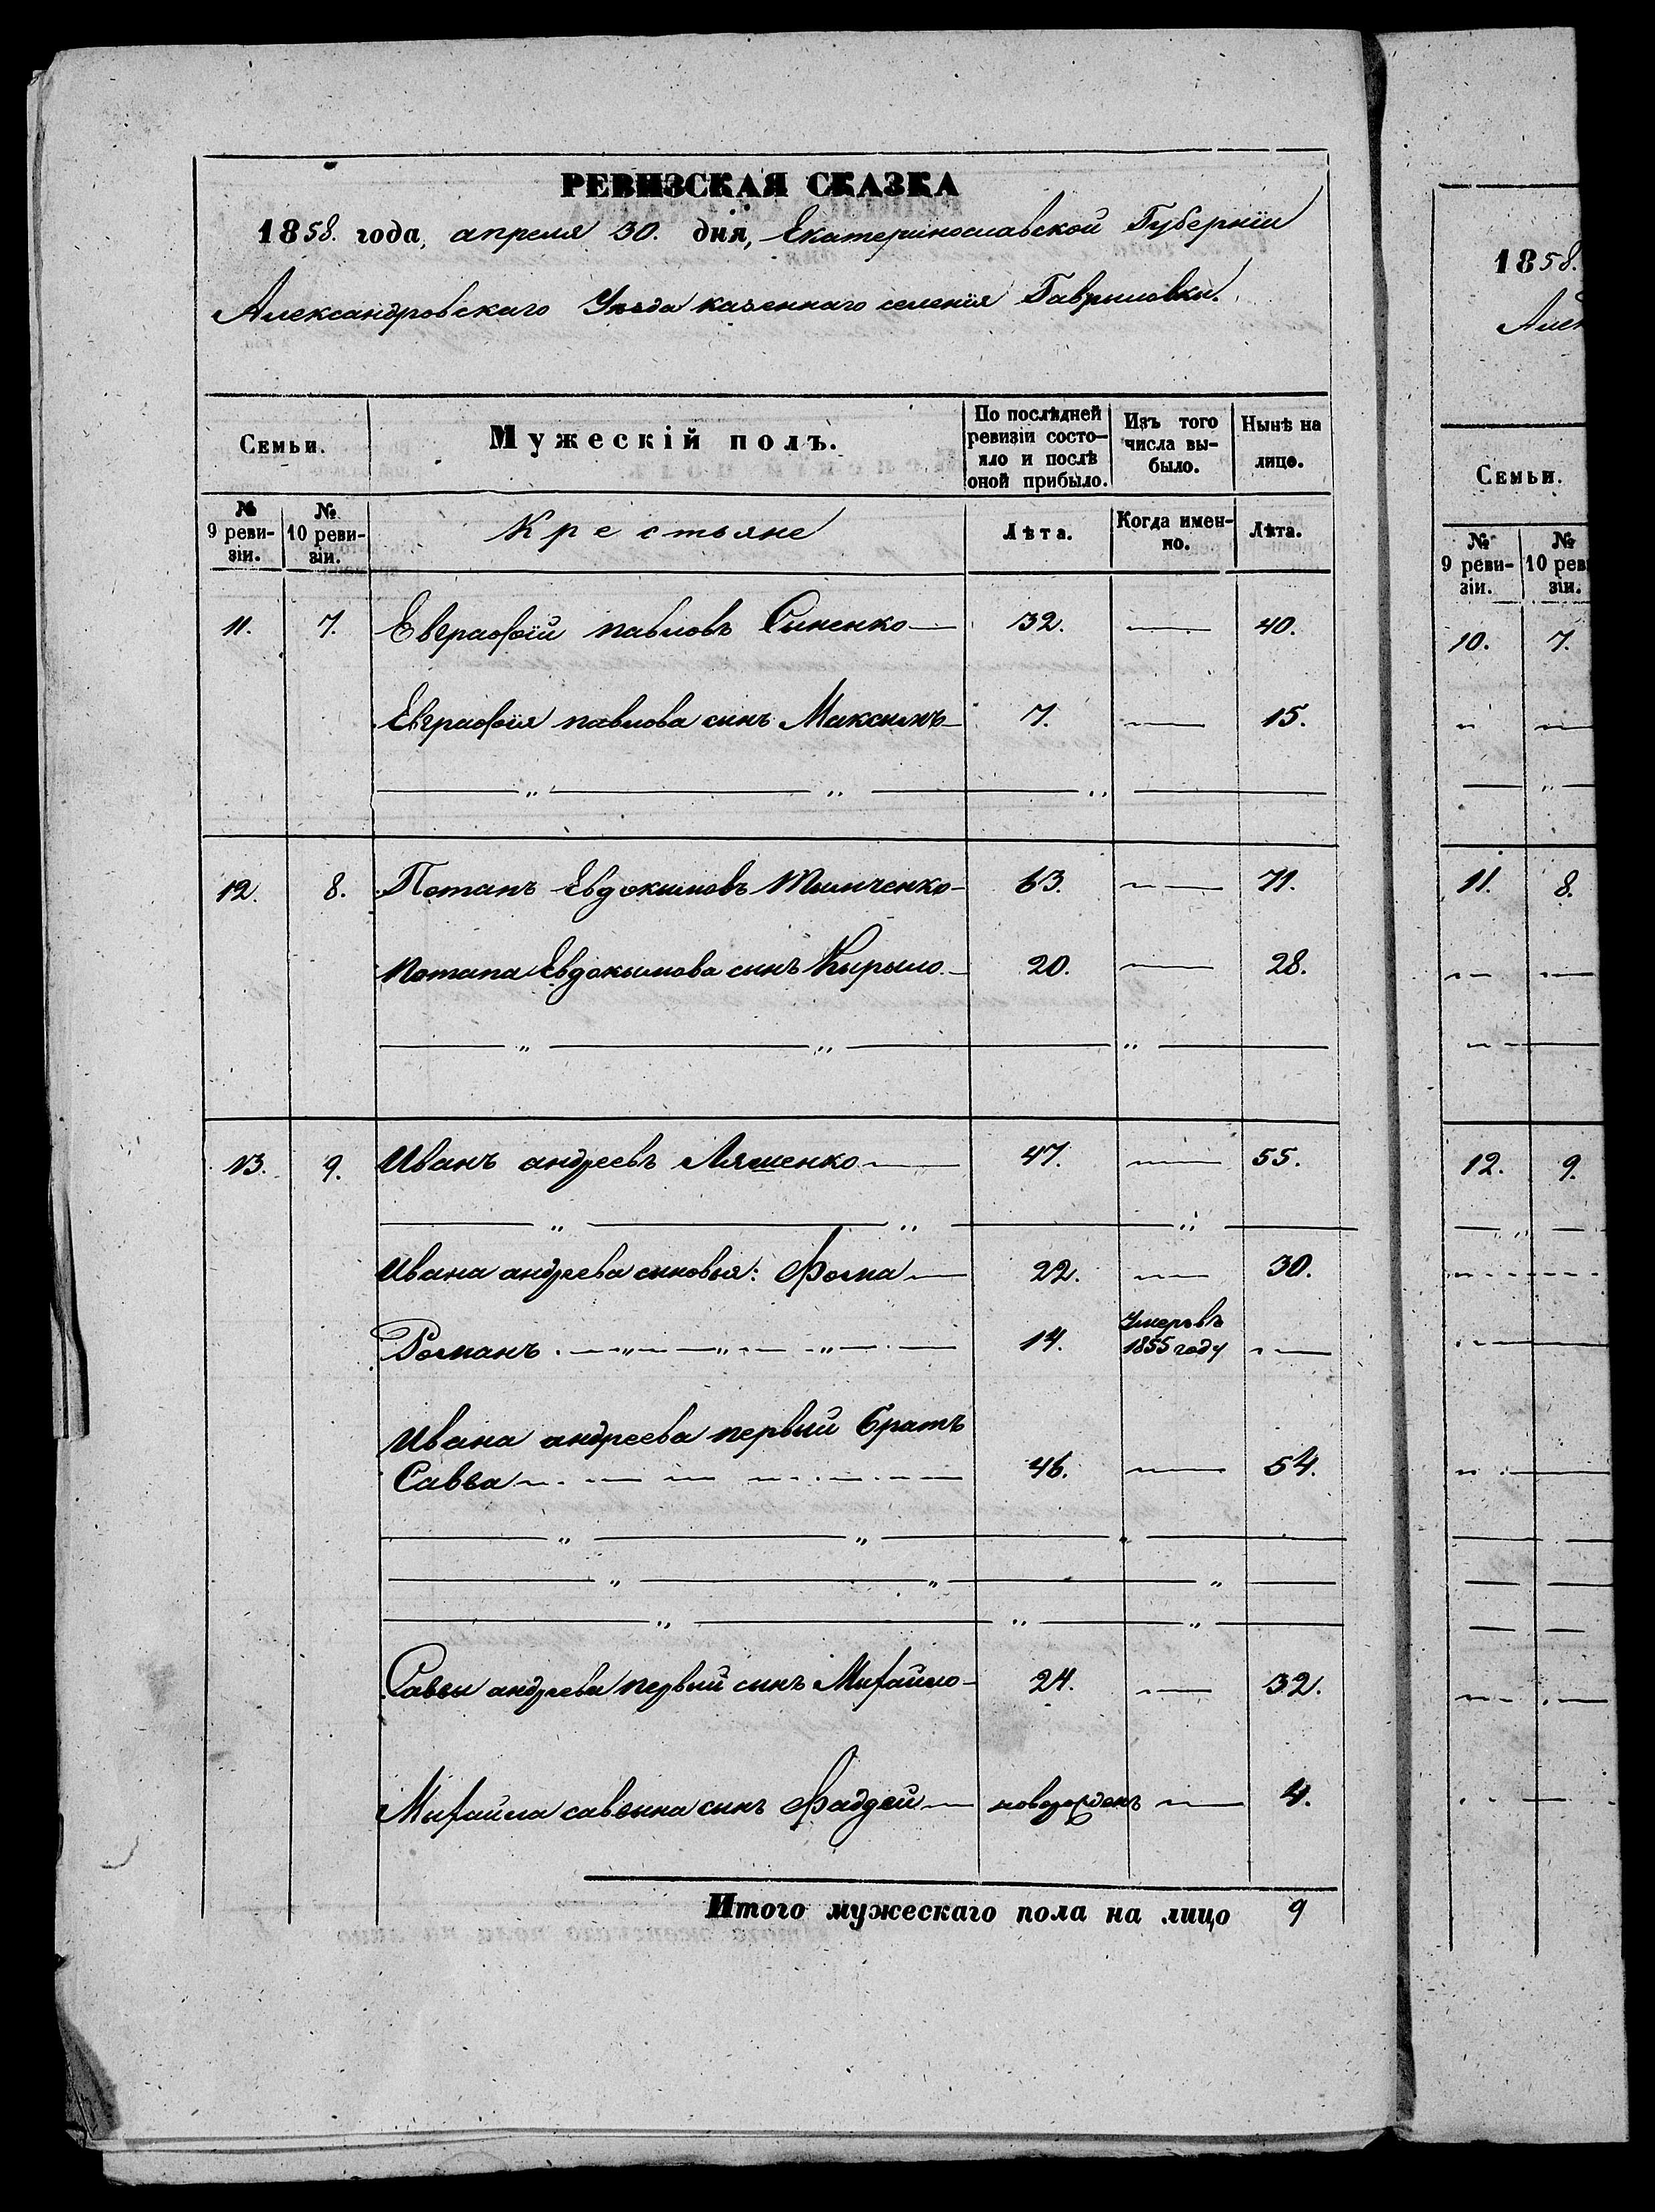 РЕВИЗСКАЯ СКАЗКА
1858. года, апреля 30. дня, Екатеринославской Губерніи
Александровскаго Уѣзда казеннаго селенія Гавриловки.
Семьи.
Мужескій полъ.
По послѣдней ревизіи состо-
яло и послѣ
оной прибыло.
Изъ того
числа вы-
было.
Нынѣ на
лицо.
№
9 реви-
зіи.
№
10 реви-
зіи.
Крестьяне
Лѣта.
Когда имен-
но.
Лѣта.
11. 7. Евграфій павловъ Синенко — 32. — 40.
Евграфія павлова синъ Максимъ — 7. — 15.
12. 8. Потапъ Евдокимовъ Тимченко — 63. — 71.
Потапа Евдокимова синъ Кирыло — 20. — 28.
13. 9. Иванъ андреевъ Ляшенко — 47. — 55.
Ивана андреева сыновья: Фома — 22. — 30.
Романъ 14. Умеръ въ
1855 году —
Ивана андреева первый братъ
Савва 46. — 54.
Саввы андреева первый синъ Михайло — 24. — 32.
Михайла саввина синъ Фаддей — новорожденъ — 4.
Итого мужескаго пола на лицо 9
1858.
Семьи.
№
9 реви-
зіи.
№
10 рев
зіи.
10. 7.
11. 8.
12. 9.